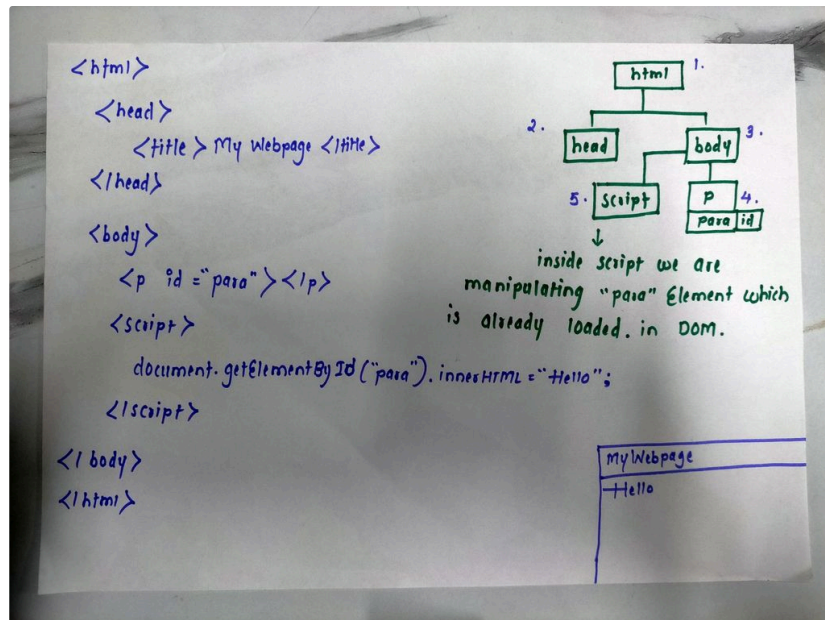 <html>
<head>
<title> My Webpage </title>
</head>
<body>
<p id ="para"></p>
<script>
document.getElementById("para").innerHTML = "Hello";
</script>
</body>
</html>
html 1.
2. head
body 3.
5. script
p 4.
para id
inside script we are
manipulating "para" Element which
is already loaded. in DOM.
My Webpage
Hello